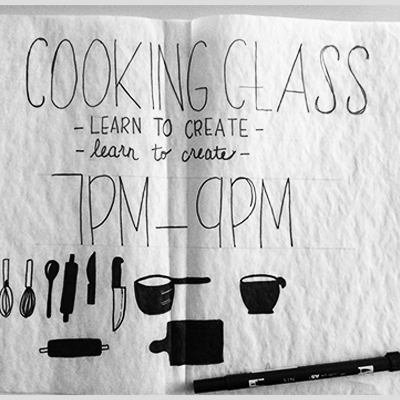 COOKING CLASS
- LEARN TO CREATE -
- learn to create -
7PM - 9PM